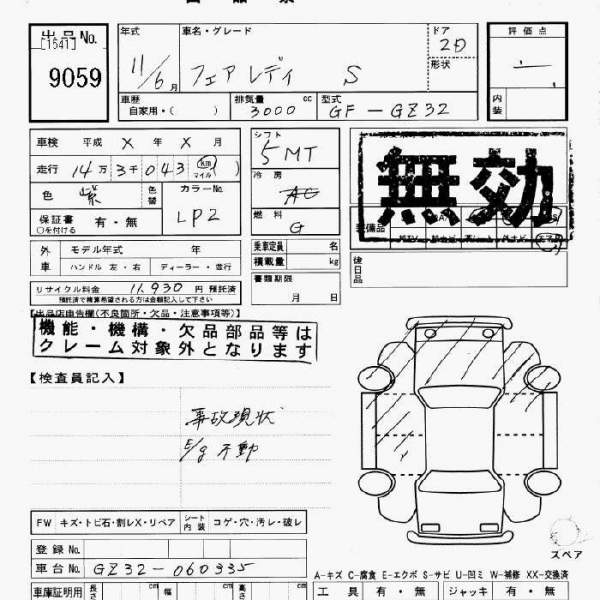 出品票
出品No. [1541] 9059
年式 11/6月
車名・グレード フェアレディ S
ドア 2D
形状
評価点
内装
車歴 自家用・( )
排気量 3000 cc
型式 GF-GZ32
車検 平成 X 年 X 月
走行 14万3千043 km マイル
色 紫
色替
カラーNo. LP2
保証書 有・無
○を付ける
シフト 5MT
冷房 AC
燃料 G
無効
装備品
後日品
外車 モデル年式 年
ハンドル 左・右 ディーラー・並行
乗車定員 名
積載量 kg
書類期限 月 日
リサイクル料金 11,930 円 預託済
預託済で精算希望される方は金額記入して下さい
【出品店申告欄(不良箇所・欠品・注意事項等)】
機能・機構・欠品部品等は
クレーム対象外となります
【検査員記入】
事故現状
E/g 不動
FW キズ・トビ石・割レX・リペア
シート内装 コゲ・穴・汚レ・破レ
登録No.
車台No. GZ32-060335
スペア
A-キズ C-腐食 E-エクボ S-サビ U-凹ミ W-補修 XX-交換済
車庫証明用 長さ cm 幅 cm 高さ cm
工具 有・無 ジャッキ 有・無